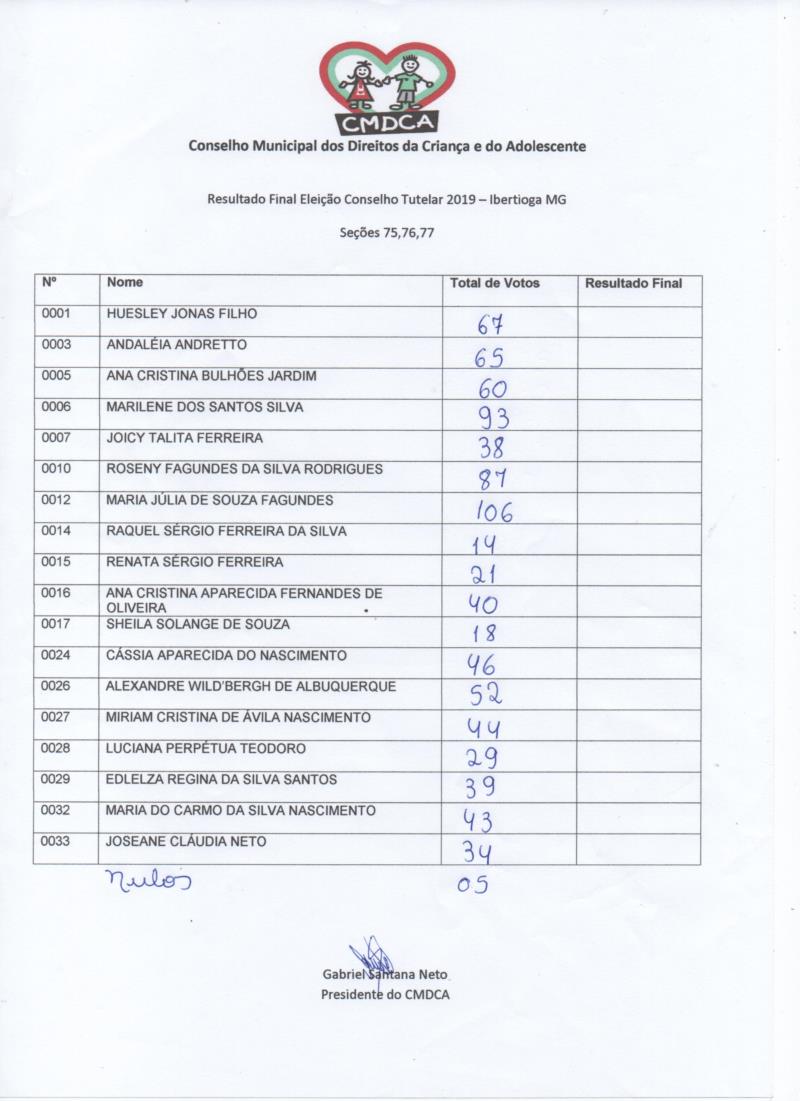 CMDCA
Conselho Municipal dos Direitos da Criança e do Adolescente
Resultado Final Eleição Conselho Tutelar 2019 – Ibertioga MG
Seções 75,76,77
Nº Nome Total de Votos Resultado Final
0001 HUESLEY JONAS FILHO 67
0003 ANDALÉIA ANDRETTO 65
0005 ANA CRISTINA BULHÕES JARDIM 60
0006 MARILENE DOS SANTOS SILVA 93
0007 JOICY TALITA FERREIRA 38
0010 ROSENY FAGUNDES DA SILVA RODRIGUES 87
0012 MARIA JÚLIA DE SOUZA FAGUNDES 106
0014 RAQUEL SÉRGIO FERREIRA DA SILVA 14
0015 RENATA SÉRGIO FERREIRA 21
0016 ANA CRISTINA APARECIDA FERNANDES DE
OLIVEIRA 40
0017 SHEILA SOLANGE DE SOUZA 18
0024 CÁSSIA APARECIDA DO NASCIMENTO 46
0026 ALEXANDRE WILD'BERGH DE ALBUQUERQUE 52
0027 MIRIAM CRISTINA DE ÁVILA NASCIMENTO 44
0028 LUCIANA PERPÉTUA TEODORO 29
0029 EDLELZA REGINA DA SILVA SANTOS 39
0032 MARIA DO CARMO DA SILVA NASCIMENTO 43
0033 JOSEANE CLÁUDIA NETO 34
Nulos 05
Gabriel Santana Neto
Presidente do CMDCA